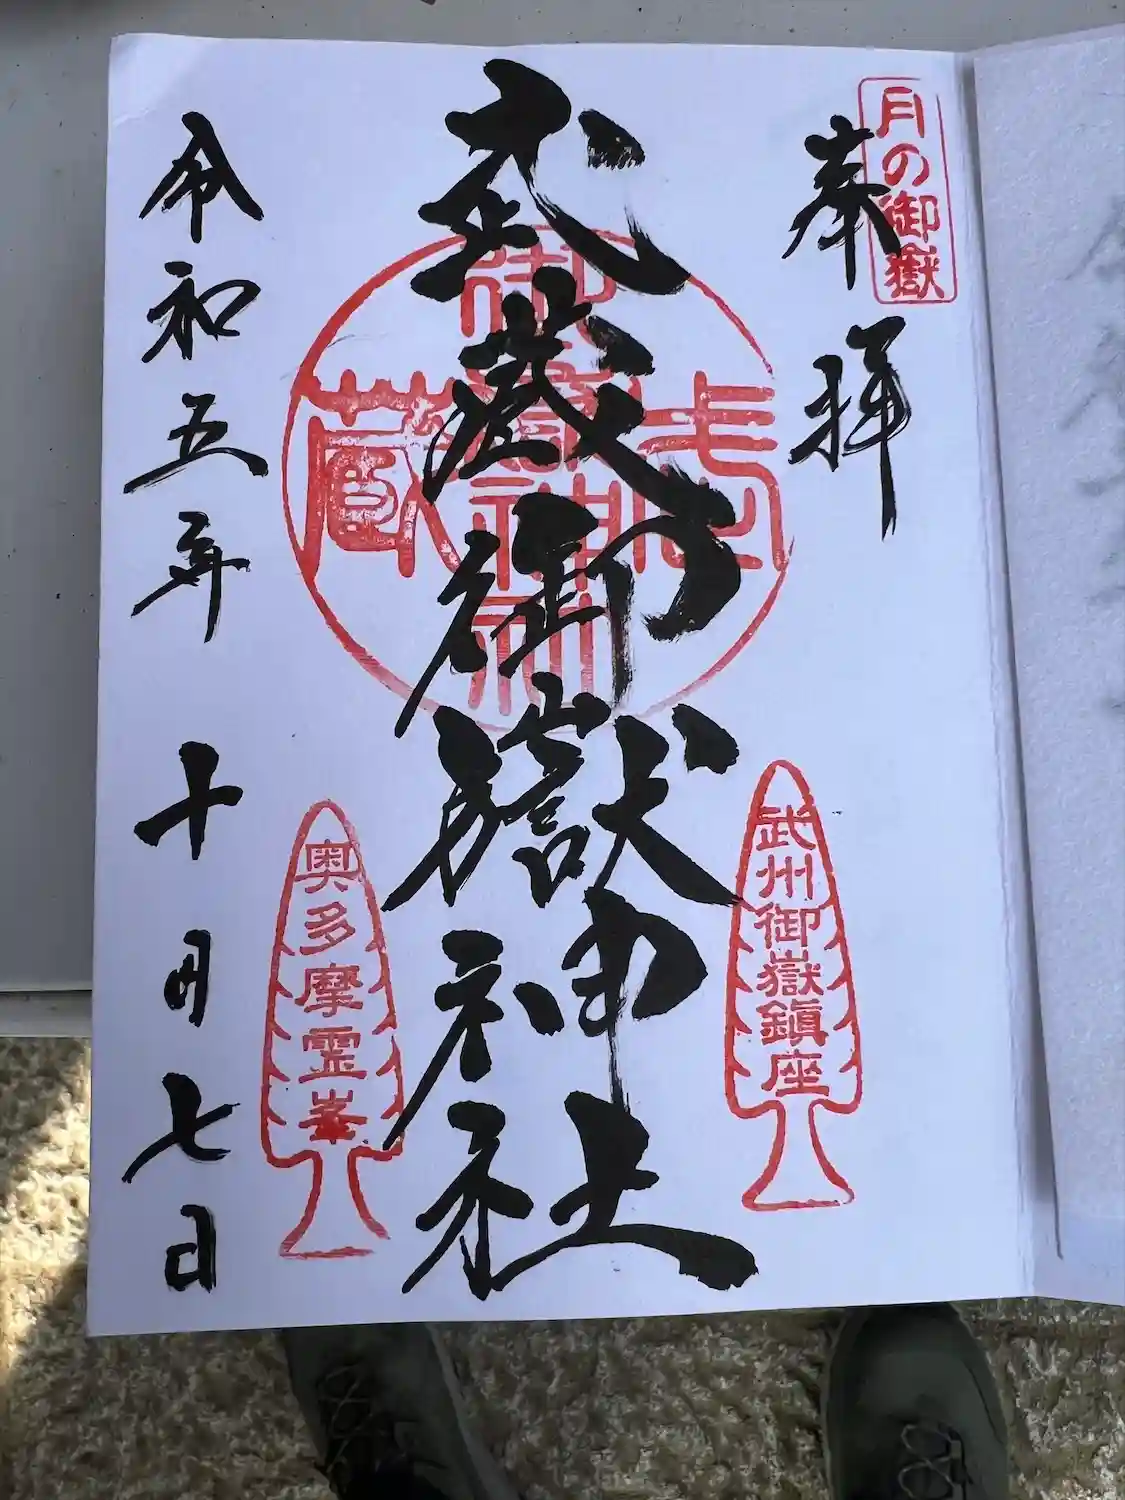 月の御嶽
奉拝
武州御嶽鎮座
武蔵御嶽神社
武蔵
御嶽神社
奥多摩霊峯
令和五年 十月七日